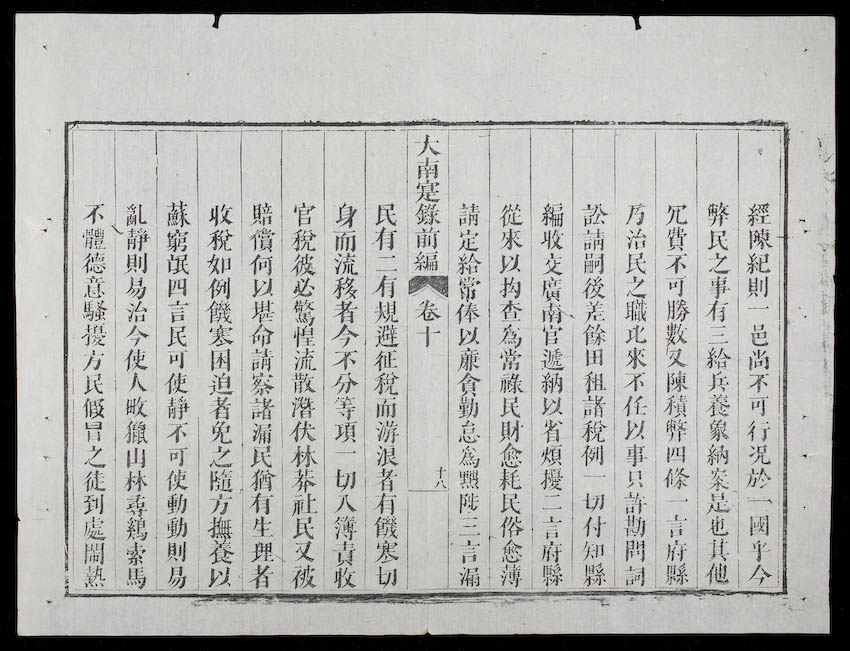 經陳紀則一邑尚不可行况於一國乎今
弊民之事有三給兵養象納案是也其他
冗費不可勝數又陳積弊四條一言府縣
乃治民之職北來不任以事只許勘問詞
訟請嗣後差餘田租諸稅例一切付知縣
編收交廣南官遞納以省煩擾二言府縣
從來以拘查爲常祿民財愈耗民俗愈薄
請定給常俸以廉貪勤怠爲黜陟三言漏
大南寔錄前編 卷十 十八
民有二有規避征稅而游浪者有饑寒切
身而流移者今不分等項一切入簿責收
官稅彼必驚惶流散潛伏林莽社民又被
賠償何以堪命請察諸漏民猶有生理者
收稅如例饑寒困迫者免之隨方撫養以
蘇窮氓四言民可使靜不可使動動則易
亂靜則易治今使人畋獵山林尋鷄索馬
不體德意騷擾方民假冒之徒到處閙熱